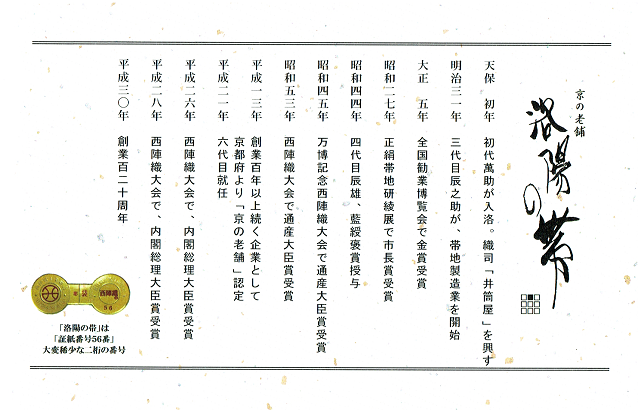 京の老舗
洛陽の帯
天保　初年　初代萬助が入洛。織司「井筒屋」を興す
明治三一年　三代目辰之助が、帯地製造業を開始
大正　五年　全国勧業博覧会で金賞受賞
昭和二七年　正絹帯地研綾展で市長賞受賞
昭和四四年　四代目辰雄、藍綬褒賞授与
昭和四五年　万博記念西陣織大会で通産大臣賞受賞
昭和五三年　西陣織大会で通産大臣賞受賞
平成一三年　創業百年以上続く企業として
京都府より「京の老舗」認定
平成二一年　六代目就任
平成二六年　西陣織大会で、内閣総理大臣賞受賞
平成二八年　西陣織大会で、内閣総理大臣賞受賞
平成三〇年　創業百二十周年
西陣織
56
「洛陽の帯」は
「証紙番号56番」
大変稀少な二桁の番号